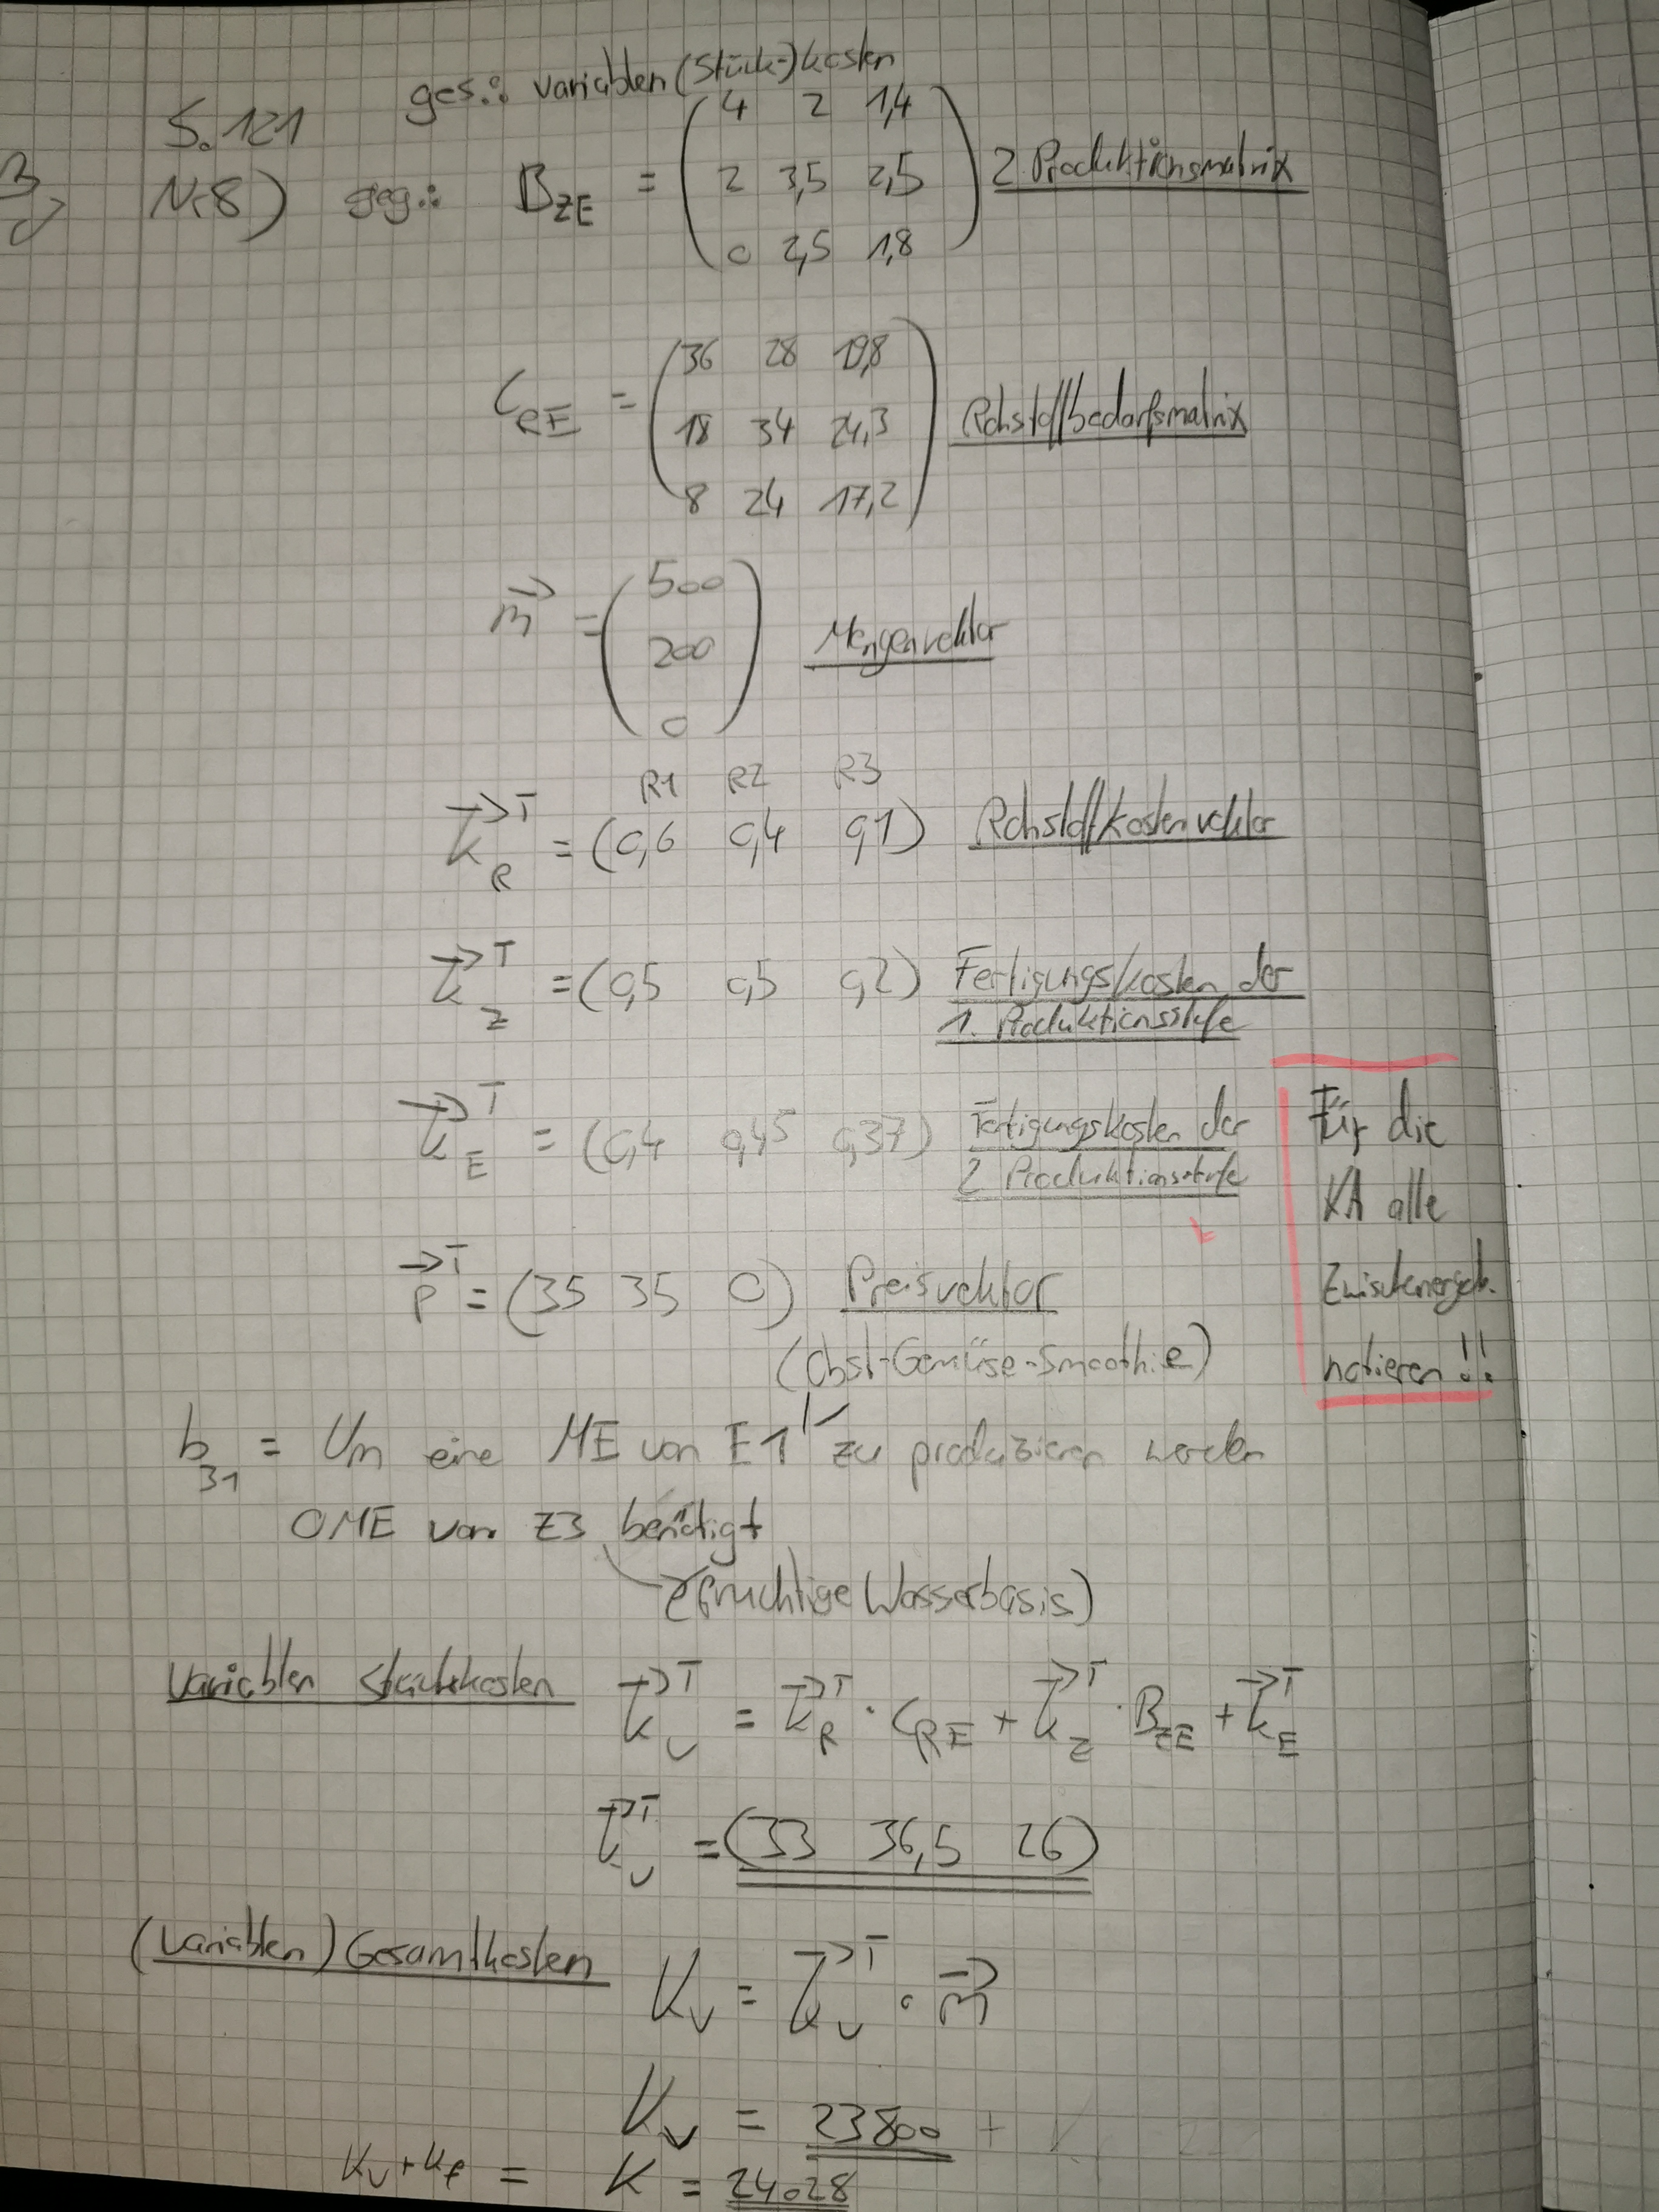 ges.: variablen (Stück-)kosten
S. 121
Nr 8) geg.: B_ZE = ( 4 2 1,4
2 3,5 2,5
0 2,5 1,8 ) 2 Produktionsmatrix
C_RE = ( 36 28 19,8
18 34 24,3
8 24 17,2 ) Rohstoffbedarfsmatrix
m→ = ( 500
200
0 ) Mengenvektor
R1 R2 R3
k→_R^T = (0,6 0,4 0,1) Rohstoffkostenvektor
k→_Z^T = (0,5 0,5 0,2) Fertigungskosten der
1. Produktionsstufe
k→_E^T = (0,4 0,45 0,37) Fertigungskosten der
2 Produktionsstufe
p→^T = (35 35 0) Preisvektor
(Obst-Gemüse-Smoothie)
Für die
KA alle
Zwischenergeb.
notieren!!
b_31 = Um eine ME von E1 zu produzieren werden
0ME von Z3 benötigt
(fruchtige Wasserbasis)
Variablen Stückkosten k→_v^T = k→_R^T · C_RE + k→_Z^T · B_ZE + k→_E^T
k→_v^T = (33 36,5 26)
(Variablen) Gesamtkosten K_v = k→_v^T · m→
K_v = 23800
K_v + K_f = K = 24028